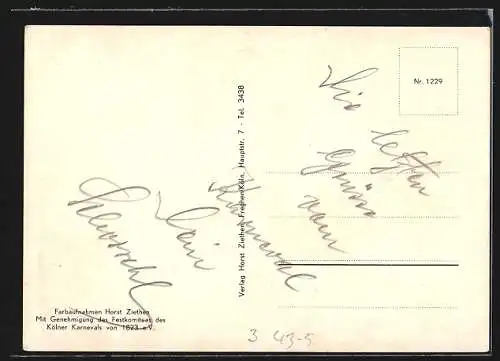 Nr. 1229
Die letzten
Grüsse
vom
Karneval
Dein
Verlag Horst Ziethen, Frechen/Köln, Hauptstr. 7 - Tel. 3438
Farbaufnahmen Horst Ziethen
Mit Genehmigung des Festkomitees des
Kölner Karnevals von 1823 e.V.
3 43-5